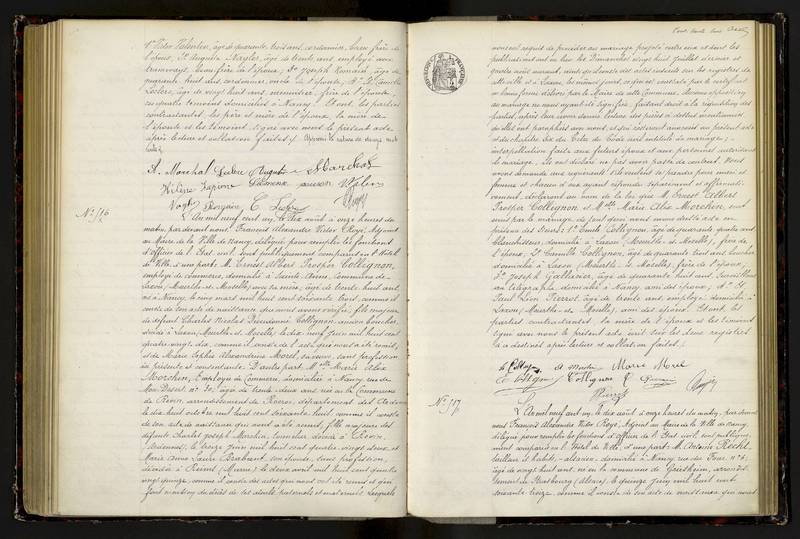 1° Victor Valentin, âgé de quarante trois ans, cordonnier, frère de
l'épouse, 2° Auguste Nagler, âgé de trente ans, employé aux
tramways, beau frère de l'épouse, 3° Joseph Romain, âgé de
quarante huit ans, cordonnier, oncle de l'épouse, 4° Camille
Leclerc, âgé de vingt huit ans, menuisier, frère de l'époux,
ces quatre témoins domiciliés à Nancy. Et ont, les parties
contractantes, les père et mère de l'époux, la mère de
l'épouse et les témoins signé avec nous le présent acte
après lecture et collation faites
A. Marchal Leclerc Auguste Marchal
N° 716
L'An mil neuf cent un, le dix août à onze heures du
matin, par devant nous, François Alexandre Victor Royé, Adjoint
au Maire de la Ville de Nancy, délégué pour remplir les fonctions
d'officier de l'État civil, sont publiquement comparus en l'Hôtel
de Ville, d'une part, M. Ernest Albert Prosper Collignon,
employé de commerce, domicilié à Sainte Anne, Commune de
Laxou, Meurthe et Moselle, avec sa mère, âgé de trente huit ans
né à Nancy, le cinq mars mil huit cent soixante trois, comme il
conste de son acte de naissance que nous avons vérifié, fils majeur
de défunt Charles Nicolas Dieudonné Collignon, ancien boucher,
décédé à Laxou, Meurthe et Moselle, le dix neuf Juin mil huit cent
quatre vingt dix, comme il conste de l'acte qui nous a été remis,
et de Marie Sophie Alexandrine Morel, sa veuve, sans profession
ici présente et consentante. D'autre part, Mlle Marie Alix
Morchen, Employée de Commerce, domiciliée à Nancy, rue de
Mon Désert, n° 30, âgée de trente deux ans, née en la Commune
de Revin, arrondissement de Rocroi, département des Ardennes
le dix huit octobre mil huit cent soixante huit, comme il conste
de son acte de naissance qui nous a été remis, fille majeure des
défunts Charles Joseph Morchen, tonnelier, décédé à Revin,
(Ardennes), le treize Juin mil huit cent quatre vingt deux, et
Marie Anne Laure Brabant, son épouse, sans profession,
décédée à Reims (Marne) le deux avril mil huit cent quatre
vingt quinze, comme il conste des actes qui nous ont été remis et qui
font mention du décès de ses aïeuls paternels et maternels. Lesquels
nous ont requis de procéder au mariage projeté entre eux et dont les
publications ont eu lieu les Dimanches vingt huit Juillet dernier et
quatre août courant, ainsi qu'il conste des actes insérés sur les registres de
cette ville et à Laxou, les mêmes jours, ce qui est constaté par le certificat
en bonne forme délivré par le Maire de cette Commune. Aucune opposition
au mariage ne nous ayant été signifiée, faisant droit à la réquisition des
parties, après leur avoir donné lecture des pièces ci dessus mentionnées
qu'elles ont paraphées avec nous et qui resteront annexées au présent acte
et du chapitre six du titre du Code civil intitulé du mariage;
interpellation faite aux futurs époux et aux personnes autorisant
le mariage, ils ont déclaré ne pas avoir passé de contrat. Nous
avons demandé aux requérants s'ils veulent se prendre pour mari et
femme et chacun d'eux ayant répondu séparément et affirmati-
vement, déclarons au nom de la loi que M. Ernest Albert
Prosper Collignon et Mlle Marie Alix Morchen, sont
unis par le mariage de tout quoi nous avons dressé acte en
présence des Sieurs 1° Emile Collignon, âgé de quarante quatre ans,
blanchisseur, domicilié à Laxou (Meurthe et Moselle), frère de
l'époux, 2° Camille Collignon, âgé de quarante ans, boucher
domicilié à Laxou (Meurthe et Moselle), frère de l'époux,
3° Joseph Gallinier, âgé de quarante huit ans, Surveillant
au télégraphe, domicilié à Nancy, ami des époux; 4° et
Paul Léon Perrot, âgé de trente ans, employé, domicilié à
Laxou, Meurthe et Moselle, ami des époux. Et ont, les
parties contractantes, la mère de l'époux et les témoins
signé avec nous le présent acte écrit sur les deux registres
à ce destinés après lecture et collation faites.
A. Collignon A. Morchen Marie Morel
E. Collignon Collignon C.
N° 717
L'An mil neuf cent un, le dix août à onze heures du matin, par devant
nous François Alexandre Victor Royé, Adjoint au Maire de la Ville de Nancy,
délégué pour remplir les fonctions d'officier de l'État civil, sont publique-
ment comparus en l'Hôtel de Ville, d'une part: M. Antoine Recht,
tailleur d'habits, alsacien, domicilié à Nancy, rue du Four, n° 4,
âgé de vingt huit ans, né en la commune de Griesheim, arrondis-
sement de Strasbourg (Alsace), le quinze Juin mil huit cent
soixante treize, comme il conste de son acte de naissance qui nous